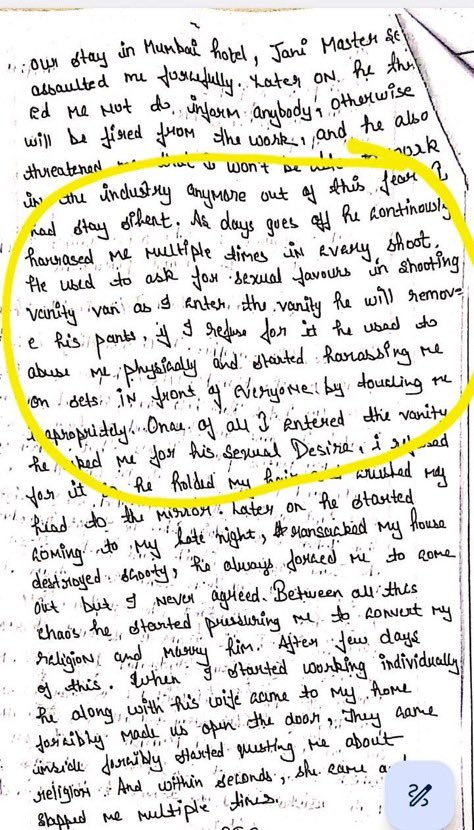 our stay in Mumbai hotel, Jani Master se
assaulted me forcefully. Later on he thr
ed me not to inform anybody, otherwise
will be fired from the work, and he also
threatened won't be work
in the industry anymore out of this fear I
had stay silent. As days goes off he continously
harrased me multiple times in every shoot.
He used to ask for sexual favours in shooting
vanity van as I enter the vanity he will remov-
e his pants, if I refuse for it he used to
abuse me physically and started harrassing me
on sets in front of everyone by touching me
inapropriately. Once of all I entered the vanity
he asked me for his sexual Desire, i refused
for it he holded my crushed my
head to the mirror. Later on he started
coming to my late night, ransacked my house
destroyed scooty, he always forced me to come
out but I never agreed. Between all this
chaos he started pressuring me to convert my
religion and marry him. After few days
of this. When I started working individually
he along with his wife came to my home
forcibly made us open the door, They came
inside forcibly started questing me about
religion. And within seconds, she came a
slapped me multiple times.